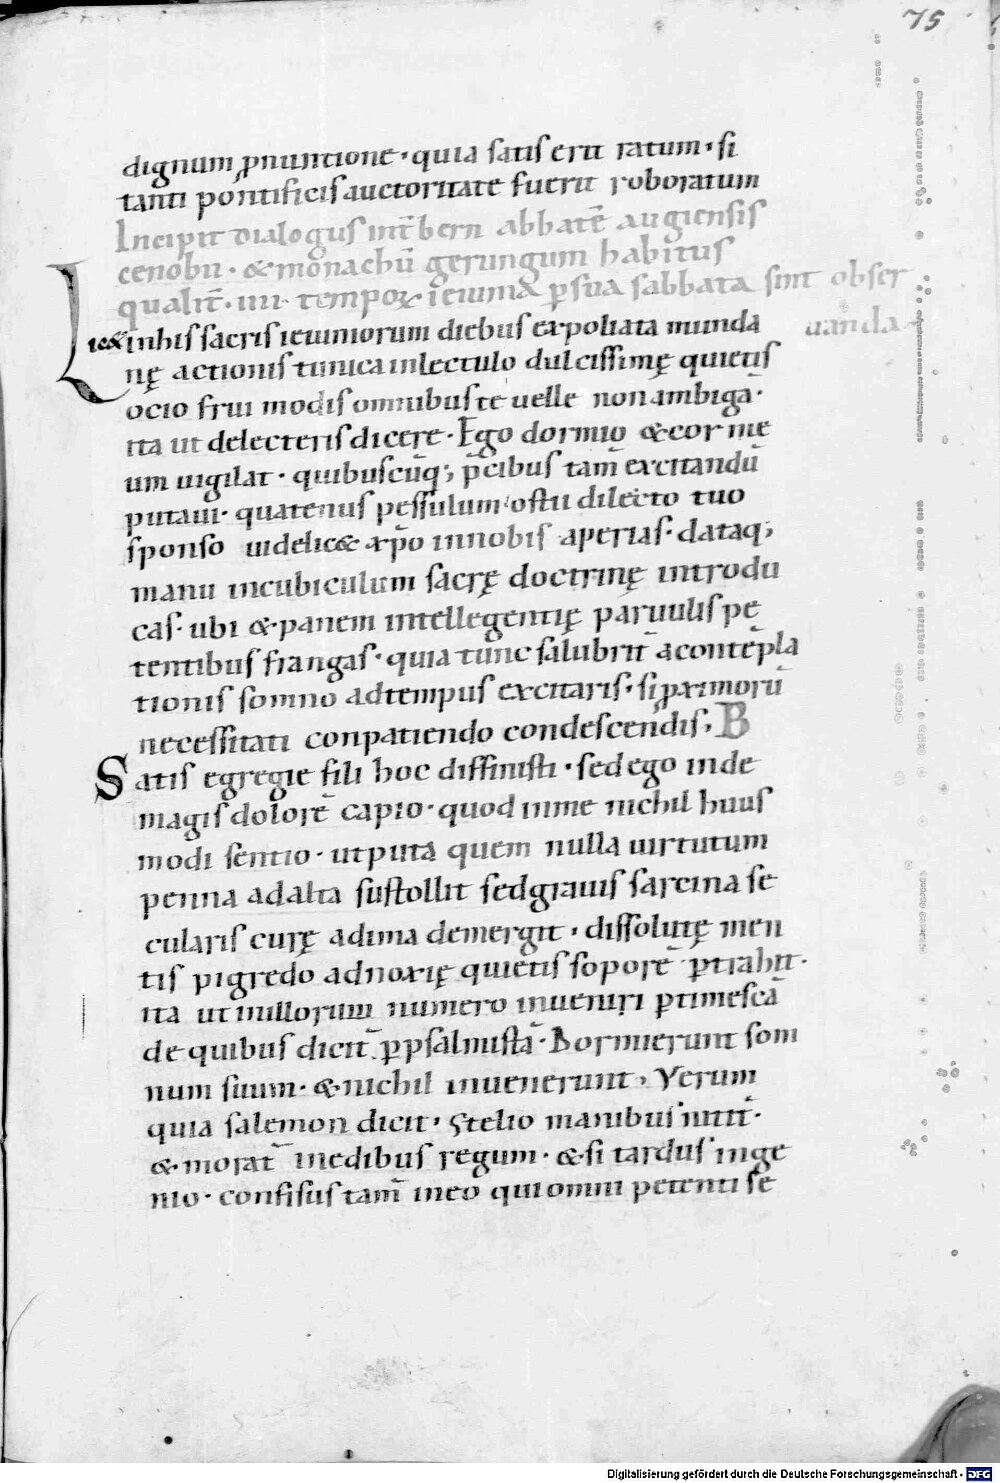 75
dignum ꝓnuntione · quia satis erit ratum · si
tanti pontificis auctoritate fuerit roboratum
Incipit dialogus int̄ bern abbatē augiensis
cenobii · & monachū gerungum habitus
qualit̄ · iiii · tempoꝝ ieiunia ꝑ sua sabbata sint obser
uanda ·
Lic& in his sacris ieiuniorum diebus expoliata munda
nę actionis tunica in lectulo dulcissimę quietis
ocio frui modis omnibus te uelle non ambiga ·
ita ut delecteris dicere · Ego dormio & cor me
um uigilat · quibuscūq; p̄cibus tam̄ excitandū
putaui · quatenus pessulum ostii dilecto tuo
sponso uidelic& xp̄o in nobis aperias · dataq;
manu in cubiculum sacrę doctrinę introdu
cas · ubi & panem intellegentię paruulis pe
tentibus frangas · quia tunc salubrit̄ a contēpla
tionis somno ad tempus excitaris · si ꝓximorū
necessitati conpatiendo condescendis · B
Satis egregie fili hoc diffinisti · sed ego inde
magis dolorē capio · quod in me nichil huius
modi sentio · utputa quem nulla uirtutum
penna ad alta sustollit sed grauis sarcina se
cularis curę ad ima demergit · dissolutę men
tis pigredo ad noxię quietis soporē ꝑtrahit ·
ita ut in illorum numero inueniri ꝑtimescā
de quibus dicit̄ ꝑ psalmistā · Dormierunt som
num suum · & nichil inuenerunt · Verum
quia salemon dicit · Stelio manibus nitit̄ ·
& morat̄ in edibus regum · & si tardus inge
nio · confisus tam̄ in eo qui omni petenti se
Digitalisierung gefördert durch die Deutsche Forschungsgemeinschaft - DFG